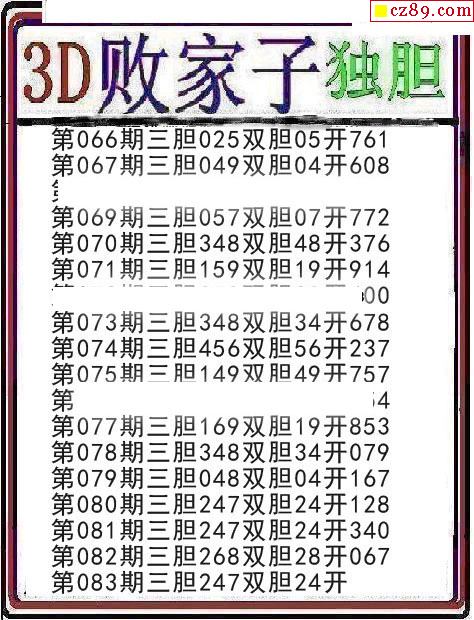 cz89.com
3D败家子独胆
第066期三胆025双胆05开761
第067期三胆049双胆04开608
第069期三胆057双胆07开772
第070期三胆348双胆48开376
第071期三胆159双胆19开914
00
第073期三胆348双胆34开678
第074期三胆456双胆56开237
第075期三胆149双胆49开757
第 4
第077期三胆169双胆19开853
第078期三胆348双胆34开079
第079期三胆048双胆04开167
第080期三胆247双胆24开128
第081期三胆247双胆24开340
第082期三胆268双胆28开067
第083期三胆247双胆24开